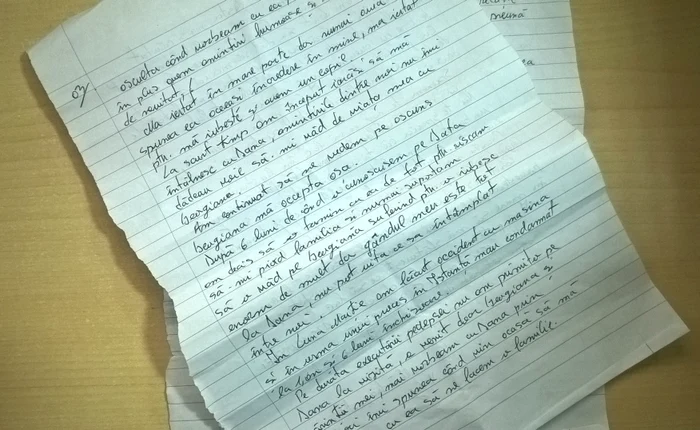 03/
asculta când vorbeam cu ea
în plus aveam amintiri frumoase și
de neuitat.
Ea iertat în mare parte dar numai avea
spunea ea aceași încredere în mine, ma iertat
ptr. mă iubește și avem un copil.
La scurt timp am început iarăși să mă
întâlnesc cu Dana, amintirile dintre noi nu îmi
dădeau voie să mi văd de viața mea cu
Georgiana.
Am continuat să ne vedem pe ascuns
Georgiana mă accepta așa.
După 6 luni de când o cunoscusem pe Dana
am decis să termin cu ea de tot ptr. riscam
să-mi pierd familia și numai suportam
să o văd pe Georgiana suferind ptr. o iubesc
enorm de mult dar gândul meu este tot
la Dana, nu pot uita ce sa întâmplat
între noi.
În luna Martie am făcut accident cu mașina
și în urma unui proces în Instanță mau condamnat
la 1 an și 6 luni închisoare.
Pe durata executării pedepsei nu am primito pe
Dana la vizită, a venit doar Georgiana și
părinții mei, mai vorbeam cu Dana prin
îmi spunea când vin acasă să mă
cu ea să ne facem o familie.